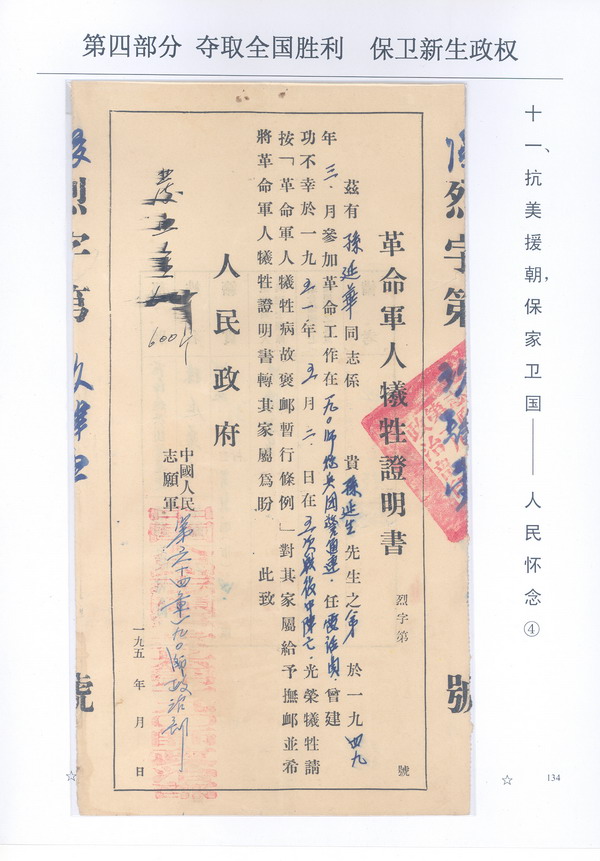 第四部分 夺取全国胜利 保卫新生政权
十一、抗美援朝,保家卫国——人民怀念④
革命軍人犧牲證明書
烈字第 號
茲有孫延華同志係 貴孫延生先生之弟 於一九四九
年三月參加革命工作在一九〇師 任電話員曾建
功不幸於一九五一年五月二日在五次戰役中陣亡光榮犧牲請
按「革命軍人犧牲病故褒邮暫行條例」對其家屬給予撫邮並希
將革命軍人犧牲證明書轉其家屬為盼 此致
人民政府
600斤
中國人民
志願軍 第六十四軍一九〇師政治部
一九五 年 月 日
烈字第
號
烈字第
號
134